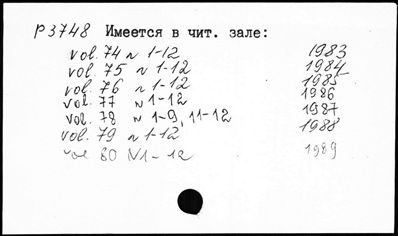 р 3748 Имеется в чит. зале:
vol. 74 N 1-12 1983
vol. 75 N 1-12 1984
vol. 76 N 1-12 1985
vol. 77 N 1-12 1986
vol. 78 N 1-9, 11-12 1987
vol. 79 N 1-12 1988
vol 80 N 1-12 1989